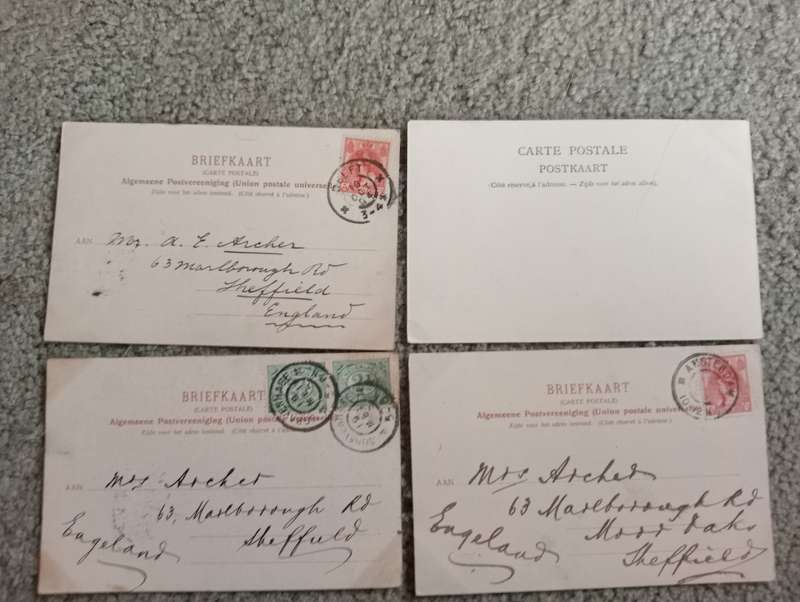 BRIEFKAART
(CARTE POSTALE)
Algemeene Postvereeniging (Union postale universe
Zijde voor het adres bestemd. (Côté réservé à l'adresse.)
DELFT
3-4
AAN Mr. A. E. Archer
63 Marlborough Rd
Sheffield
England
CARTE POSTALE
POSTKAART
(Côté réservé à l'adresse. — Zijde voor het adres alleen).
BRIEFKAART
(CARTE POSTALE)
Algemeene Postvereeniging (Union postale universe
Zijde voor het adres bestemd. (Côté réservé à l'adresse.)
AAN Mrs Archer
63, Marlborough Rd
Sheffield
Engeland
BRIEFKAART
(CARTE POSTALE)
Algemeene Postvereeniging (Union postale universe
Zijde voor het adres bestemd. (Côté réservé à l'adresse.)
AMSTERDAM
AAN Mrs Archer
63 Marlborough Rd
Moor Oaks
Sheffield
Engeland